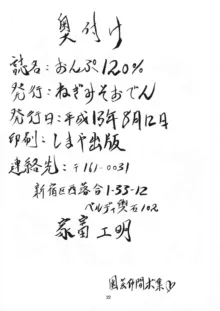 奥付け
誌名：おんぷ120%
発行：ねぎみそおでん
発行日：平成13年8月12日
印刷：しまや出版
連絡先：〒161-0031
新宿区西落合1-33-12
ベルディ奥石102
家富工明
園芸仲間求集♡
22